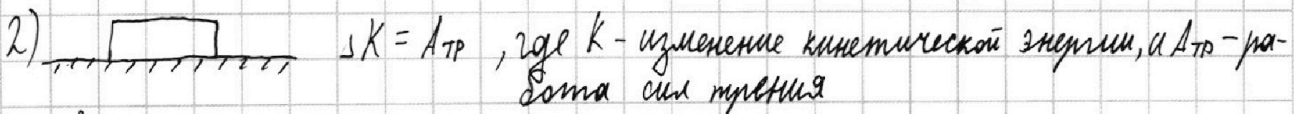 2) ΔK = Aтр , где K - изменение кинетической энергии, и Aтр - ра-
бота сил трения